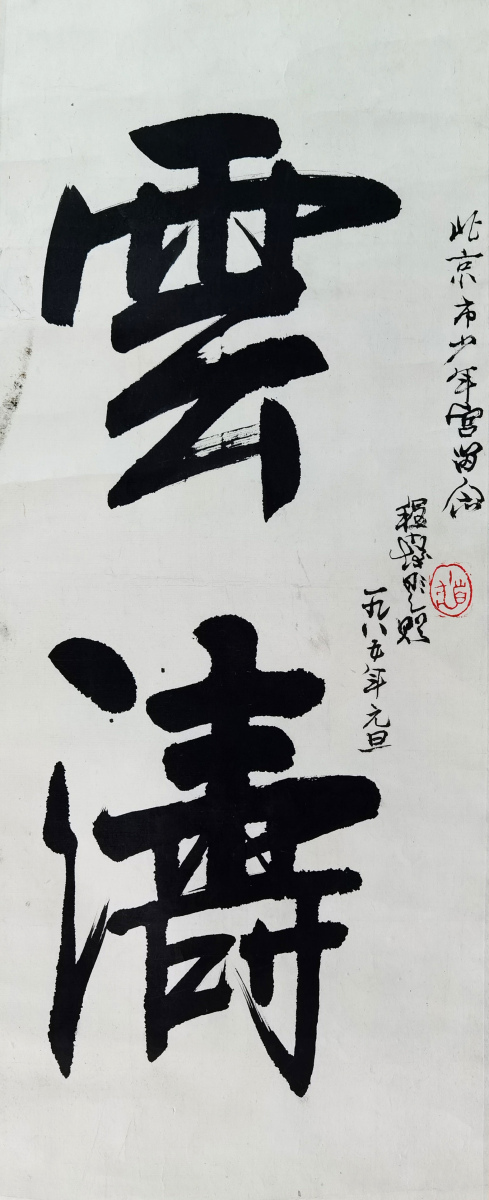 雲濤
北京市少年宮留念
程
一九八五年元旦